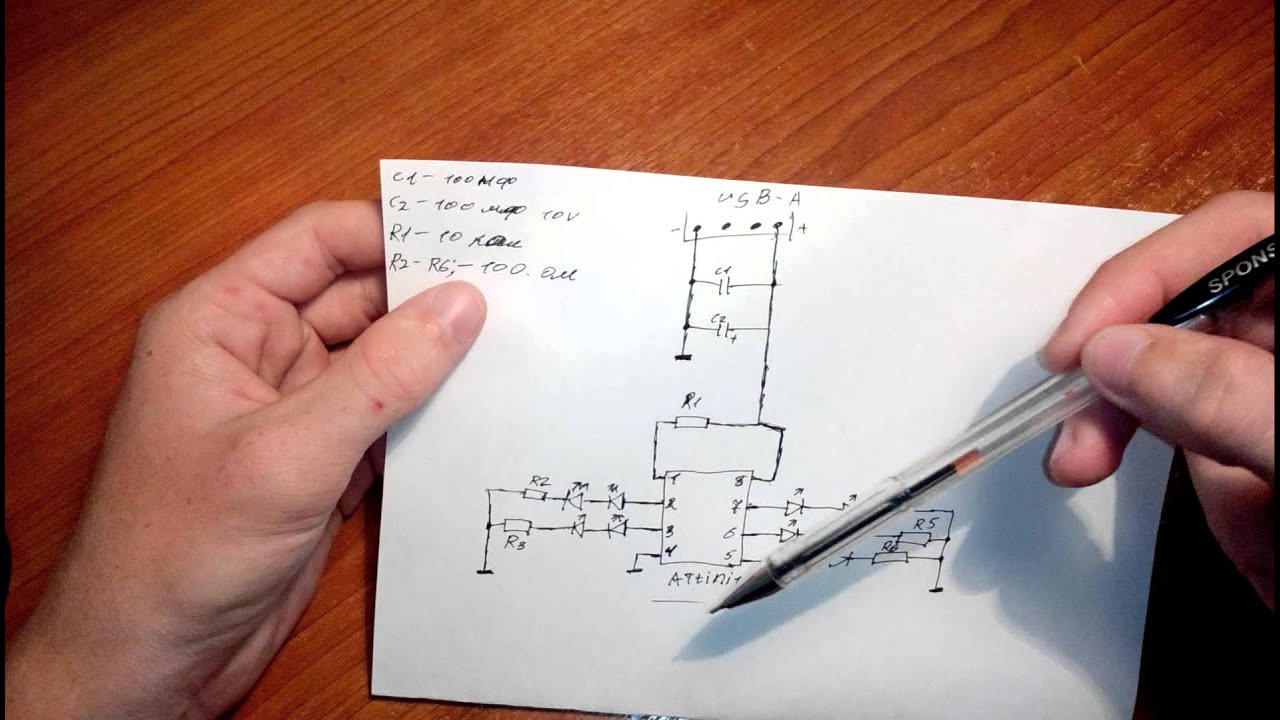 C1 - 100 мф
C2 - 100 мф 10V
R1 - 10 ком
R2 - R6; - 100. ом
USB-A
- +
C1
C2
+
R1
1 8
R2 2 7
3 6 R5
R3 R6
4 5
ATtini1
SPONS